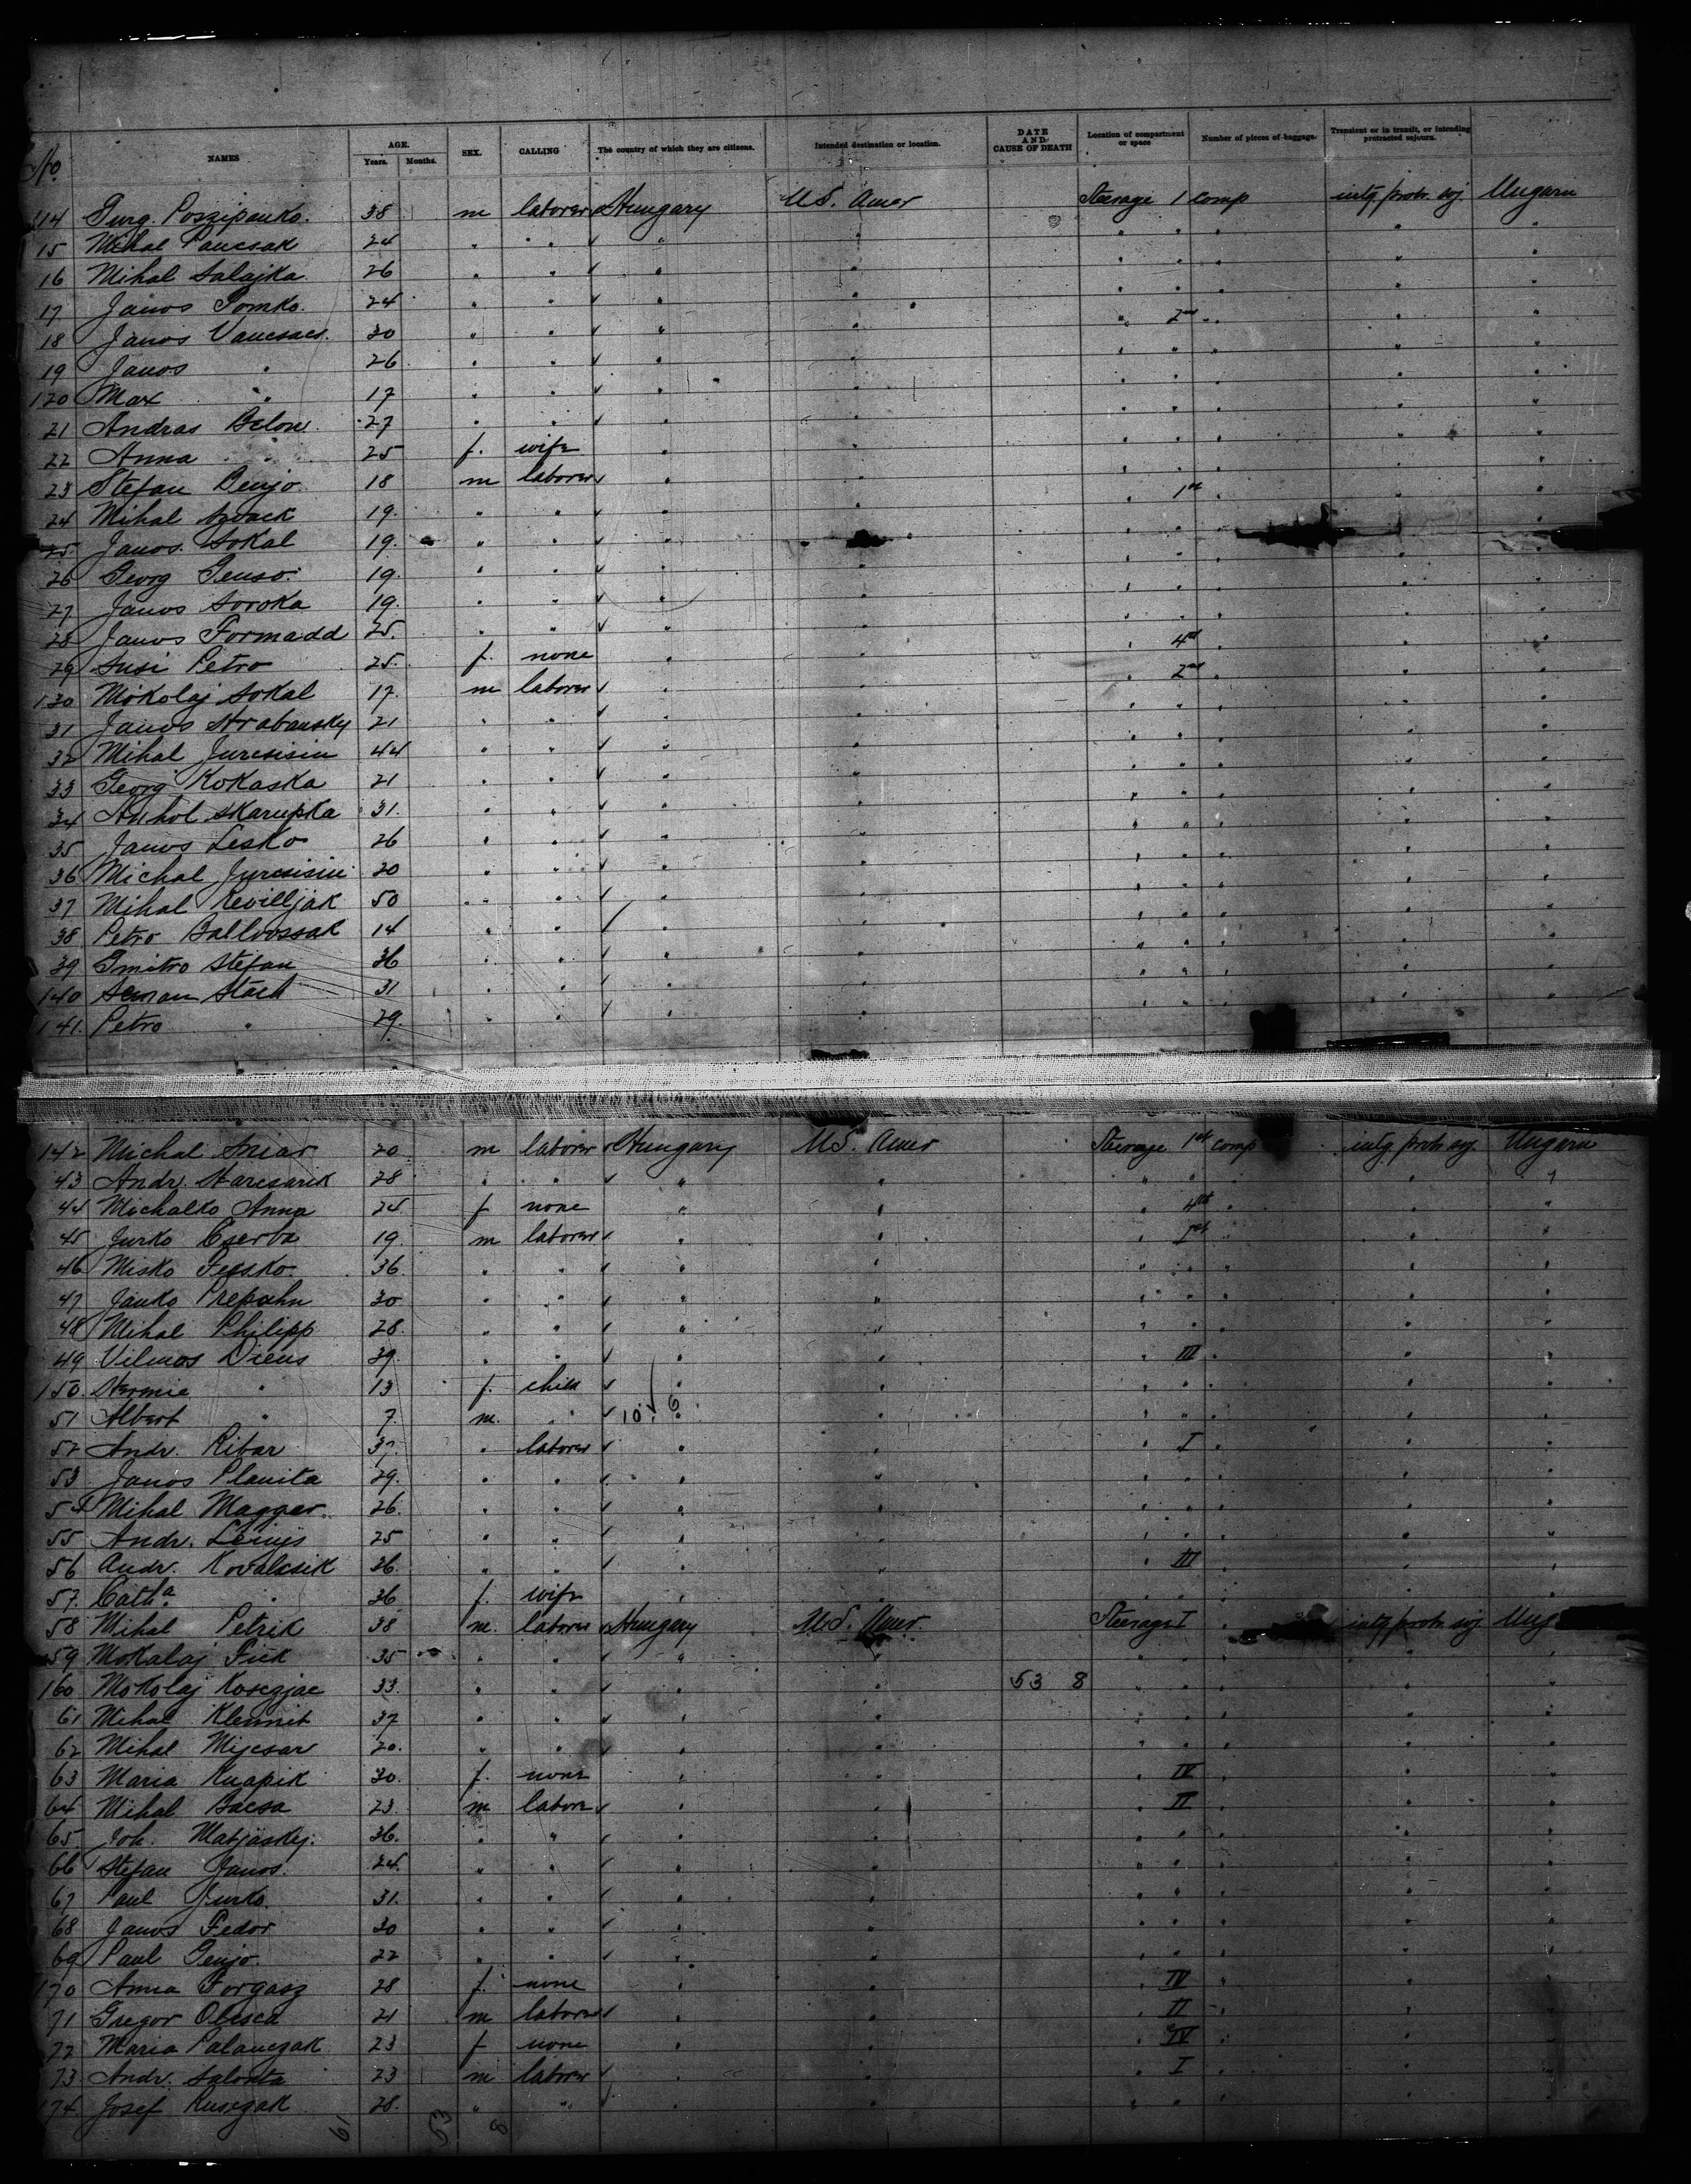 No. NAMES AGE. Years. Months. SEX. CALLING The country of which they are citizens. Intended destination or location. DATE AND CAUSE OF DEATH Location of compartment or space Number of pieces of baggage. Transient or in transit, or intending protracted sojourn.
114 38 m laborer Hungary U.S. Amer Steerage 1 comp intg protr. soj. Ungarn
15 Mihal Pancsak 24 " " " " " " " " "
16 Mihal Salajka 26 " " " " " " " " "
17 Janos Tomko. 24 " " " " " " " " "
18 Janos 30 " " " " " 2nd " " "
19 Janos " 26 " " " " " " " " "
120 Max " 17 " " " " " " " " "
21 Andras Belon 27 " " " " " " " " "
22 Anna " 25 f. wife " " " " " " "
23 Stefan 18 m laborer " " " 1st " " "
24 Mihal 19. " " " " " " " " "
25 Janos Sokal 19. " " " " " " " " "
26 Georg 19. " " " " " " " " "
27 Janos Soroka 19. " " " " " " " " "
28 Janos Formadd 25. " " " " " 4th " " "
29 Susi Petro 25. f. none " " " 2nd " " "
130 Mokolaj Sokal 17. m laborer " " " " " " "
31 Janos Hrabansky 21 " " " " " " " " "
32 Mihal Juresisin 44 " " " " " " " " "
33 Georg Kokaska 21 " " " " " " " " "
34 Skarupka 31. " " " " " " " " "
35 Janos Lesko 26 " " " " " " " " "
36 Michal Juresisin 20 " " " " " " " " "
37 Mihal Revilljak 50 " " " " " " " " "
38 Petro 14 " " " " " " " " "
39 Dmitro Stefan 36 " " " " " " " " "
140 Seman 31 " " " " " " " " "
141. Petro " 29. " " " " " " " " "
142 Michal 20 m laborer Hungary U.S. Amer Steerage 1st comp intg. protr. soj. Ungarn
43 Andr. 28 " " " " " " " " "
44 Michalko Anna 24 f none " " " 4th " " "
45 Jurko Cserba 19 m laborer " " " 1st " " "
46 Misko Fecsko 36. " " " " " " " " "
47 Janko Prepuhn 30 " " " " " " " " "
48 Mihal Philipp 28. " " " " " " " " "
49 Vilmos Diens 39. " " " " " III " " "
150. Hermie " 13 f. child " " " " " " "
51 Albert " 7. m. " 10 6 " " " " " " "
52 Andr. Ribar 37. " laborer " " " I " " "
53 Janos Planita 29. " " " " " " " " "
54 Mihal Magger 26. " " " " " " " " "
55 Andr. 25 " " " " " " " " "
56 Andr. Kovalcsik 36. " " " " " III " " "
57. Catha " 36 f. wife " " " " " " "
58 Mihal Petrik 38 m. laborer Hungary U.S. Amer. Steerage I " intg protr. soj. Ung
59 Mokalaj Fiik 35 " " " " " " " " "
160 Mokolaj 33. " " " " 53 8 " " " " "
61 Mihal 37 " " " " " " " " "
62 Mihal Mijcsar 20. " " " " " " " " "
63 Maria Knapik 30. f. none " " " IV " " "
64 Mihal Bacsa 23 m labore " " " II " " "
65. Joh. Matjaskij. 36. " " " " " " " " "
66 Stefan Janos. 24. " " " " " " " " "
67 Paul Jurko. 31. " " " " " " " " "
68 Janos Fedor 30 " " " " " " " " "
69 Paul 22 " " " " " " " " "
170 Anna Forgasz 28 f. none " " " IV " " "
71 Gregor Olesca 21 m laborer " " " II " " "
72 Maria Palanczak 23 f none " " " IV " " "
73 Andr. Salonta 23 m laborer " " " I " " "
174. Josef Rusczak 28. " " " " " " " " "
61 53 8